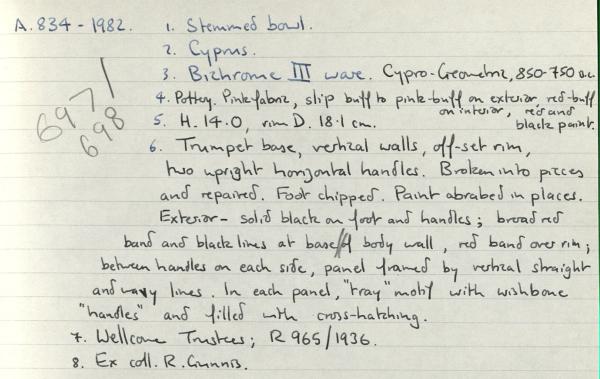 A.834-1982. 1. Stemmed bowl.
2. Cyprus.
3. Bichrome III ware. Cypro-Geometric, 850-750 B.C.
4. Pottery. Pink fabric, slip buff to pink-buff on exterior, red-buff
on interior, red and
black paint.
5. H. 14.0, rim D. 18.1 cm.
697/
698
6. Trumpet base, vertical walls, off-set rim,
two upright horizontal handles. Broken into pieces
and repaired. Foot chipped. Paint abrabed in places.
Exterior - solid black on foot and handles; broad red
band and black lines at base of body wall, red band over rim;
between handles on each side, panel framed by vertical straight
and wavy lines. In each panel, "tray" motif with wishbone
"handles" and filled with cross-hatching.
7. Wellcome Trustees; R 965/1936.
8. Ex coll. R. Gunnis.